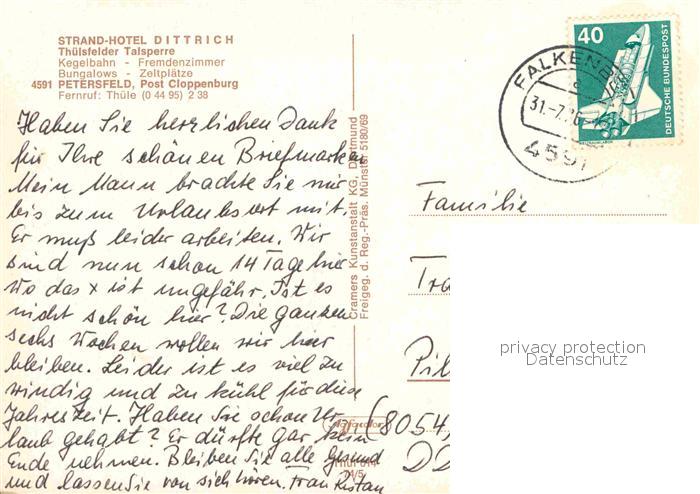 STRAND-HOTEL DITTRICH
Thülsfelder Talsperre
Kegelbahn - Fremdenzimmer
Bungalows - Zeltplätze
4591 PETERSFELD, Post Cloppenburg
Fernruf: Thüle (0 44 95) 2 38
Haben Sie herzlichen Dank
für Ihre schönen Briefmarken
Mein Mann brachte Sie mir
bis zum Urlaubsort mit.
Er muß leider arbeiten. Wir
sind nun schon 14 Tage hier
wo das x ist ungefähr. Ist es
nicht schön hier? Die ganzen
sechs Wochen wollen wir hier
bleiben. Leider ist es viel zu
windig und zu kühl für diese
Jahreszeit. Haben Sie schon Ur-
laub gehabt? Er dürfte gar kein
Ende nehmen. Bleiben Sie alle gesund
und lassen Sie von sich hören. Frau
Cramers Kunstanstalt KG, Dortmund
Freigeg. d. Reg.-Präs. Münster 5180/69
Thül 014
74/5
FALKENB
31.-7.76
4591
40
DEUTSCHE BUNDESPOST
Familie
Tra
Pil
(8054,
DD
privacy protection
Datenschutz